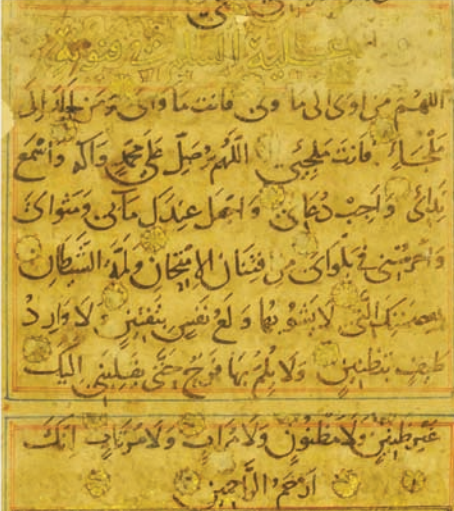 عليه السلام في قنوته
اللهم من اوى الى ماوى فانت ماواى ومن لجا الى
ملجاء فانت ملجئي اللهم صل على محمد وآله واسمع
ندائى واجب دعائى واجعل عندك مآبى ومثواى
واحرسنى في بلواى من افتنان الامتحان ولمة الشيطان
بعظمتك التى لا يشوبها ولع نفس بتفتين ولا وارد
طيف بتظنين ولا يلم بها فرج حتى تقلبنى اليك
غير ظنين ولا مظنون ولا مراب ولا مرتاب انك
ارحم الراحمين